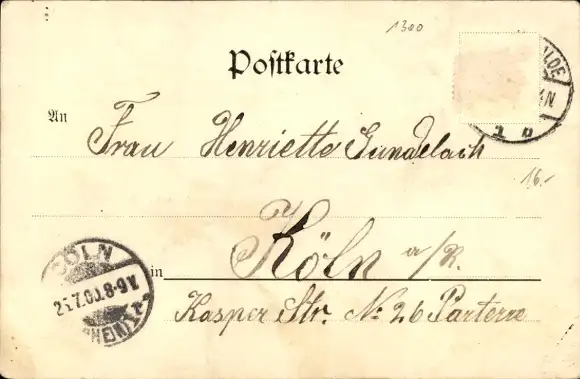 1300
Postkarte
An
Frau Henriette Gundelach
16.-
Köln a/R.
in
Kasper Str. No 26 Parterre
CÖLN
25.7.00.8-9V.
(RHEIN)